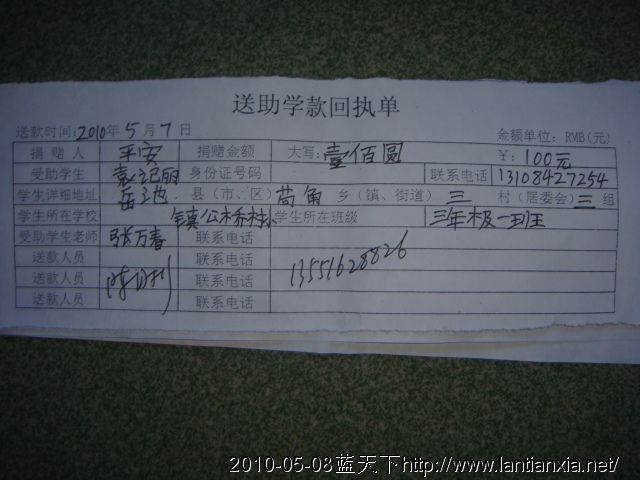 送助学款回执单
送款时间:2010年5月7日 金额单位：RMB(元)
捐赠人 平安 捐赠金额 大写：壹佰圆 ￥：100元
受助学生 身份证号码 联系电话 13108427254
学生详细地址 岳池 县（市、区）苟角 乡（镇、街道）三 村（居委会）三组
学生所在学校 镇 学生所在班级 三年级一班
受助学生老师 张万春 联系电话
送款人员 联系电话 13551628826
送款人员 联系电话
送款人员 联系电话
2010-05-08蓝天下http://www.lantianxia.net/